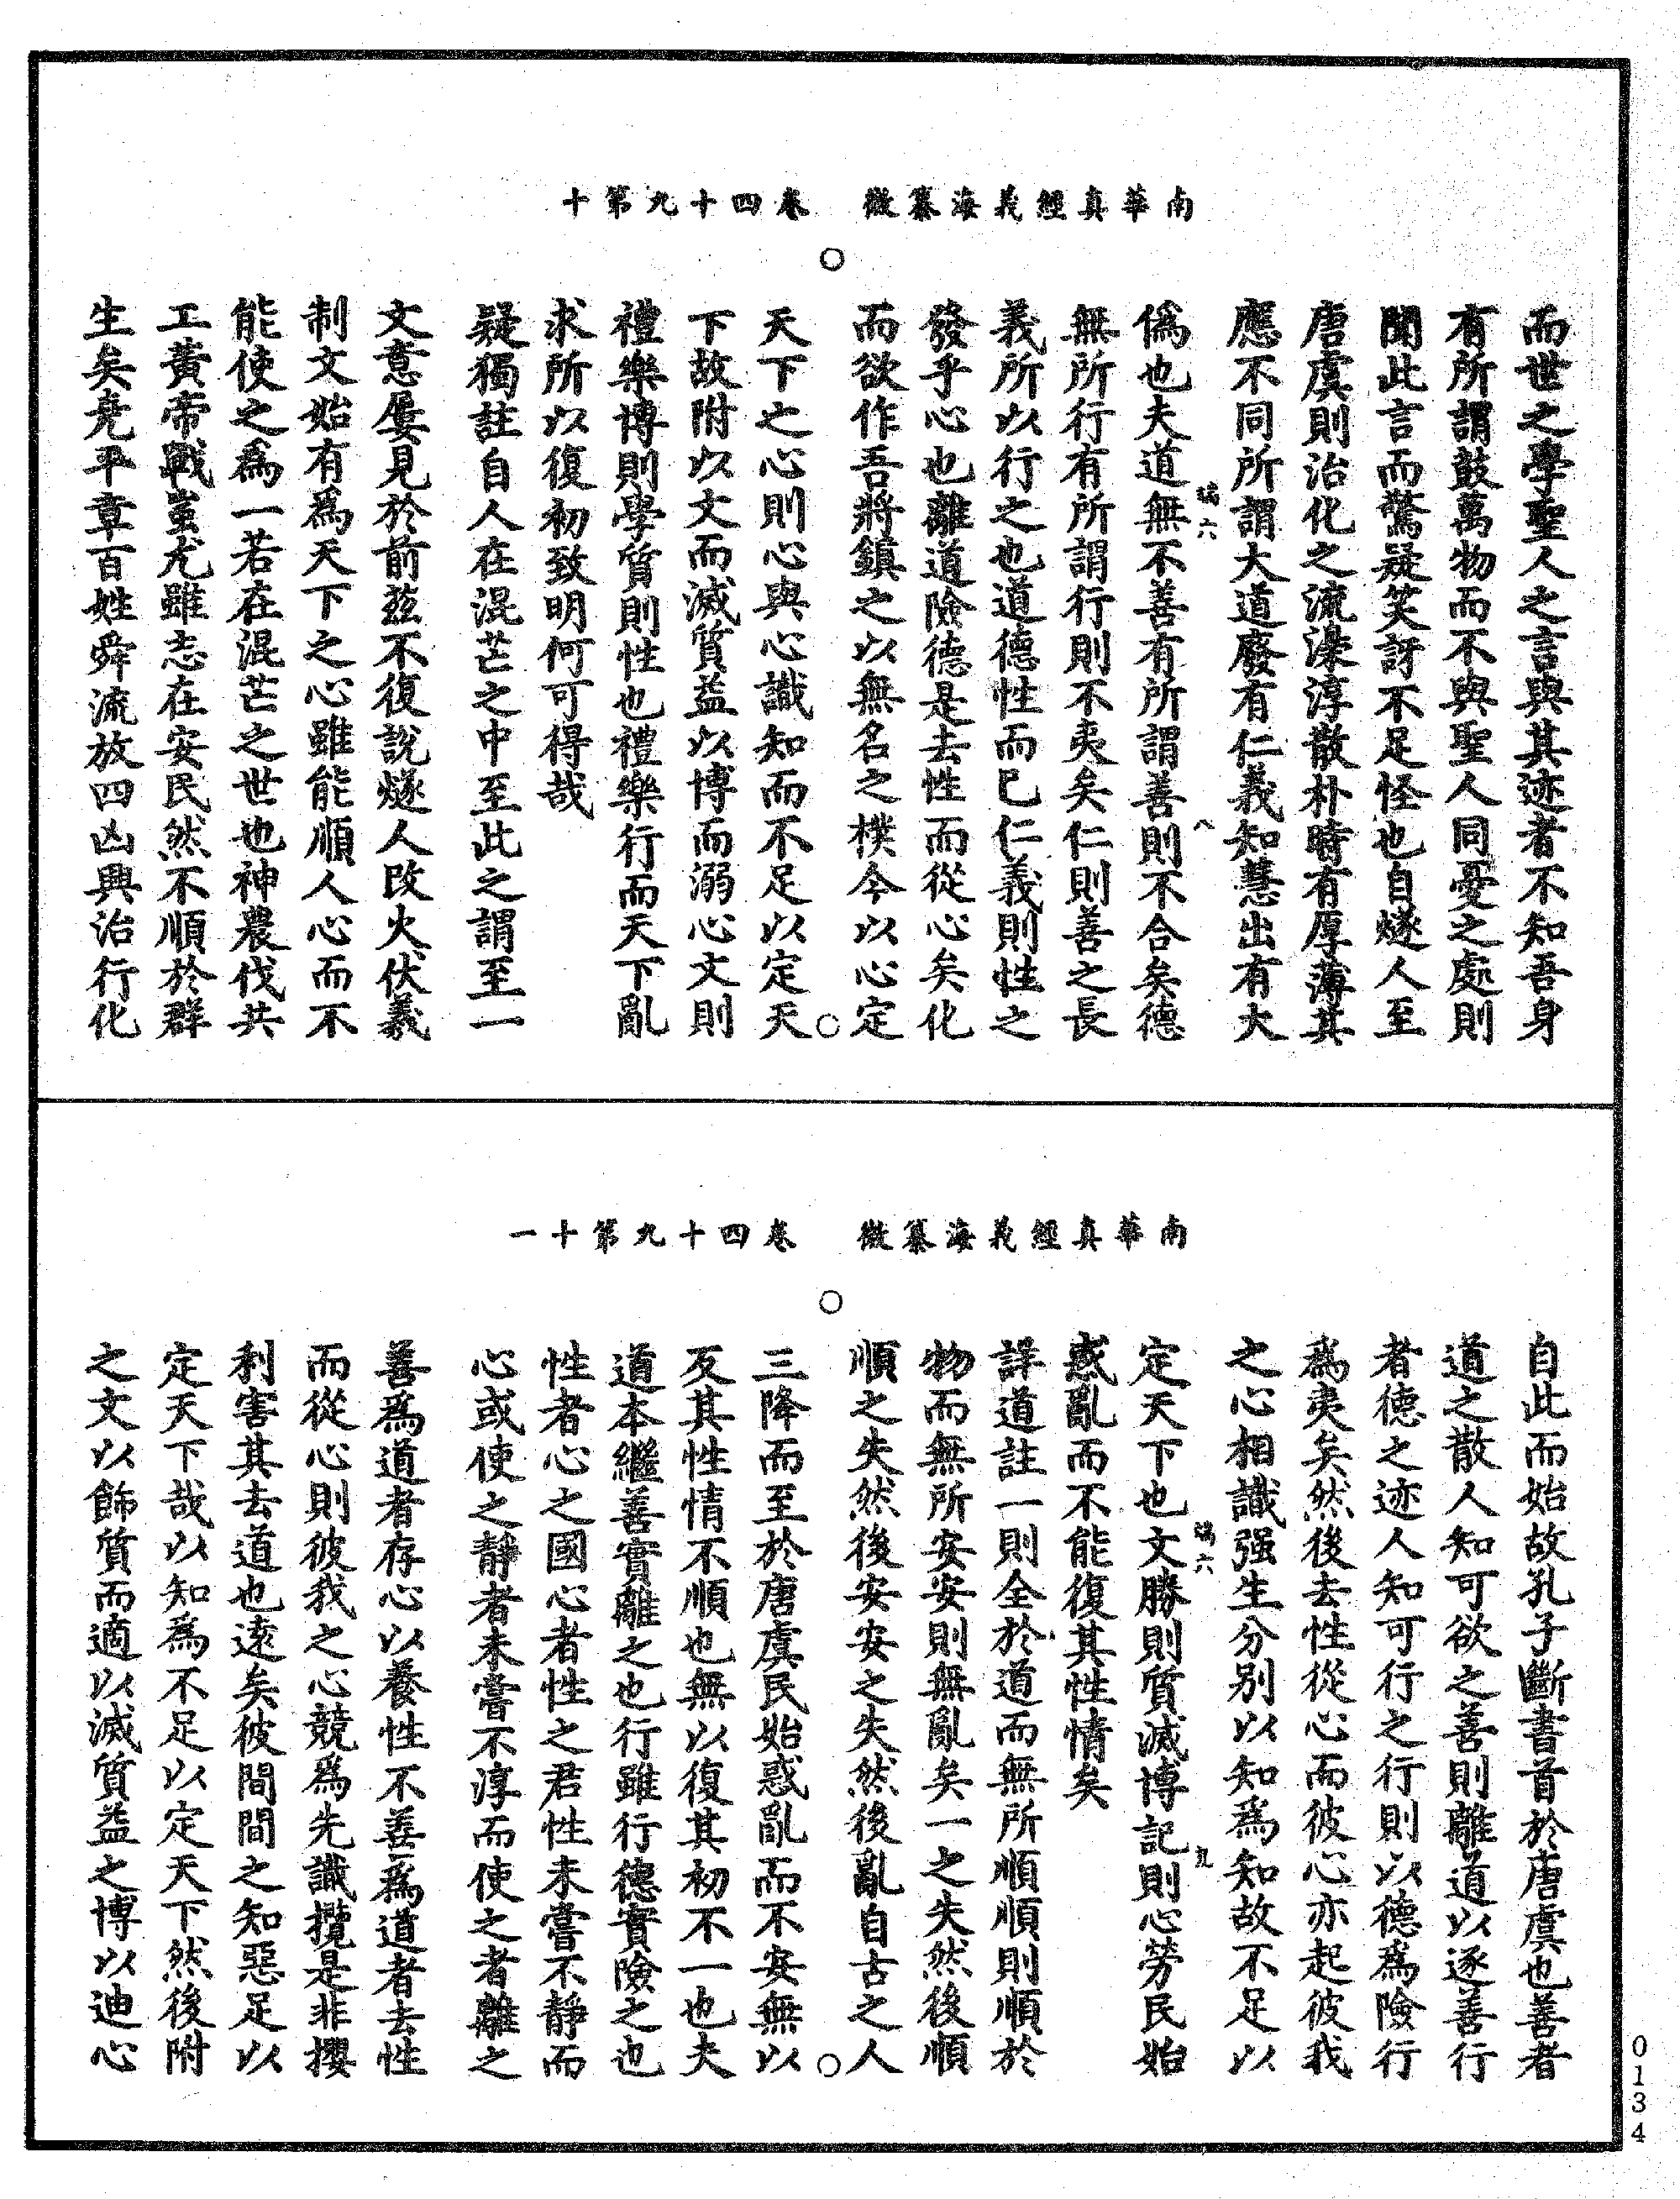 南華真經義海纂微　卷四十九第十
而世之學聖人之言與其迹者不知吾身
有所謂鼓萬物而不與聖人同憂之處則
聞此言而驚疑笑訝不足怪也自燧人至
唐虞則治化之流澆淳散朴時有厚薄其
應不同所謂大道廢有仁義知慧出有大
偽也夫道無不善有所謂善則不合矣德
無所行有所謂行則不夷矣仁則善之長
義所以行之也道德性而已仁義則性之
發乎心也離道險德是去性而從心矣化
而欲作吾將鎮之以無名之樸今以心定
天下之心則心與心識知而不足以定天
下故附以文而滅質益以博而溺心文則
禮樂博則學質則性也禮樂行而天下亂
求所以復初致明何可得哉
疑獨註自人在混芒之中至此之謂至一
文意屢見於前茲不復說燧人改火伏羲
制文始有為天下之心雖能順人心而不
能使之為一若在混芒之世也神農伐共
工黃帝戰蚩尤雖志在安民然不順於群
生矣堯平章百姓舜流放四凶興治行化
南華真經義海纂微　卷四十九第十一
自此而始故孔子斷書首於唐虞也善者
道之散人知可欲之善則離道以逐善行
者德之迹人知可行之行則以德為險行
為夷矣然後去性從心而彼心亦起彼我
之心相識强生分別以知為知故不足以
定天下也文勝則質滅博記則心勞民始
惑亂而不能復其性情矣
詳道註一則全於道而無所順順則順於
物而無所安安則無亂矣一之失然後順
順之失然後安安之失然後亂自古之人
三降而至於唐虞民始惑亂而不安無以
反其性情不順也無以復其初不一也夫
道本繼善實離之也行雖行德實險之也
性者心之國心者性之君性未嘗不靜而
心或使之靜者未嘗不淳而使之者離之
善為道者存心以養性不善為道者去性
而從心則彼我之心競為先識攬是非攖
利害其去道也遠矣彼間間之知惡足以
定天下哉以知為不足以定天下然後附
之文以飾質而適以滅質益之博以迪心
0134